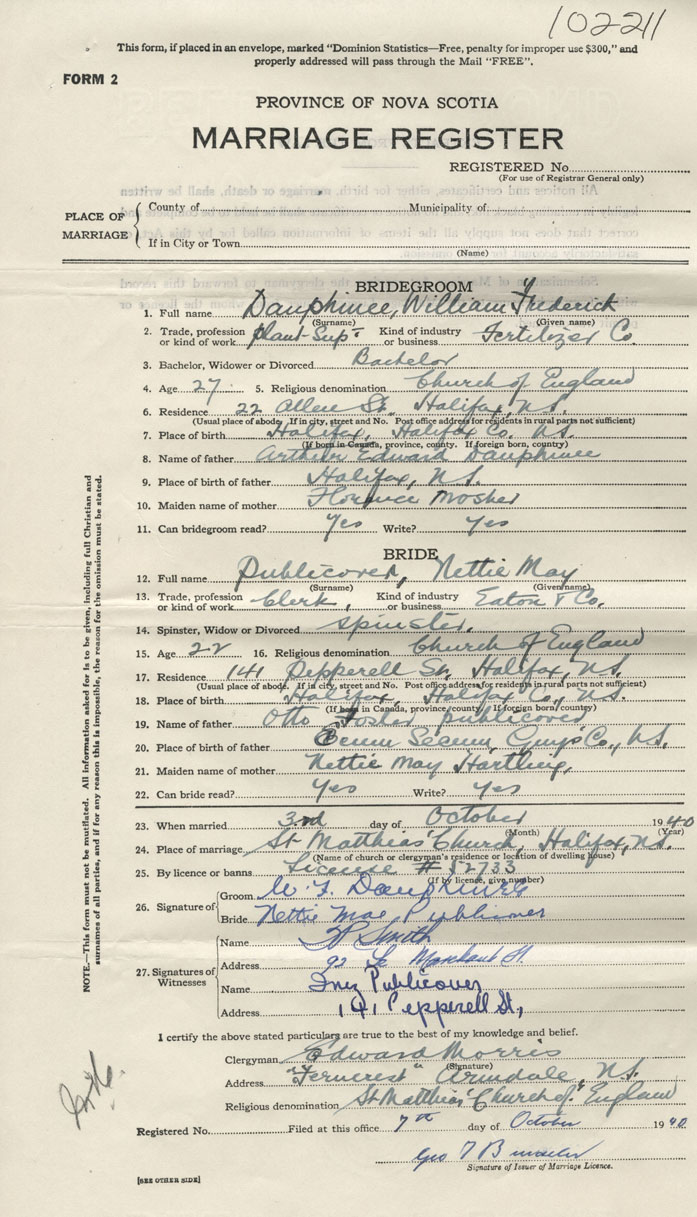 10221
This form, if placed in an envelope, marked "Dominion Statistics—Free, penalty for improper use $300," and
properly addressed will pass through the Mail "FREE".
FORM 2
PROVINCE OF NOVA SCOTIA
MARRIAGE REGISTER
REGISTERED No.
(For use of Registrar General only)
PLACE OF MARRIAGE
County of Municipality of
If in City or Town
(Name)
BRIDEGROOM
1. Full name Dauphinee, William Frederick
(Surname) (Given name)
2. Trade, profession or kind of work Plant Supt Kind of industry or business Fertilizer Co.
3. Bachelor, Widower or Divorced Bachelor
4. Age 27 5. Religious denomination Church of England
6. Residence 22 Allen St. Halifax, N.S.
(Usual place of abode. If in city, street and No. Post office address for residents in rural parts not sufficient)
7. Place of birth Halifax, Halifax Co. N.S.
(If born in Canada, province, county. If foreign born, country)
8. Name of father Arthur Edward Dauphinee
9. Place of birth of father Halifax, N.S.
10. Maiden name of mother Florence Mosher
11. Can bridegroom read? Yes Write? Yes
BRIDE
12. Full name Publicover, Nettie May
(Surname) (Given name)
13. Trade, profession or kind of work Clerk, Kind of industry or business Eaton & Co.
14. Spinster, Widow or Divorced Spinster.
15. Age 22 16. Religious denomination Church of England
17. Residence 141 Pepperell St, Halifax, N.S.
(Usual place of abode. If in city, street and No. Post office address for residents in rural parts not sufficient)
18. Place of birth Halifax, Halifax Co., N.S.
(If born in Canada, province, county. If foreign born, country)
19. Name of father Otto Foster Publicover
20. Place of birth of father Ecum Secum, Guys Co., N.S.
21. Maiden name of mother Nettie May Hartling,
22. Can bride read? Yes Write? Yes
23. When married 3rd day of October 1940
(Month) (Year)
24. Place of marriage St Matthias' Church, Halifax, N.S.
(Name of church or clergyman's residence or location of dwelling house)
25. By licence or banns Licence # 52733
(If by licence, give number)
26. Signature of
Groom W. F. Dauphinee
Bride Nettie Mae Publicover
27. Signatures of Witnesses
Name Smith
Address 92 Le Marchant St.
Name Inez Publicover
Address 141 Pepperell St,
I certify the above stated particulars are true to the best of my knowledge and belief.
Clergyman Edward Morris
(Signature)
Address "Ferncrest" Armdale, N.S.
Religious denomination St Matthias' Church of England
Registered No. Filed at this office 7th day of October 1940.
Geo
Signature of Issuer of Marriage Licence.
[SEE OTHER SIDE]
NOTE.—This form must not be mutilated. All information asked for is to be given, including full Christian and
surnames of all parties, and if for any reason this is impossible, the reason for the omission must be stated.